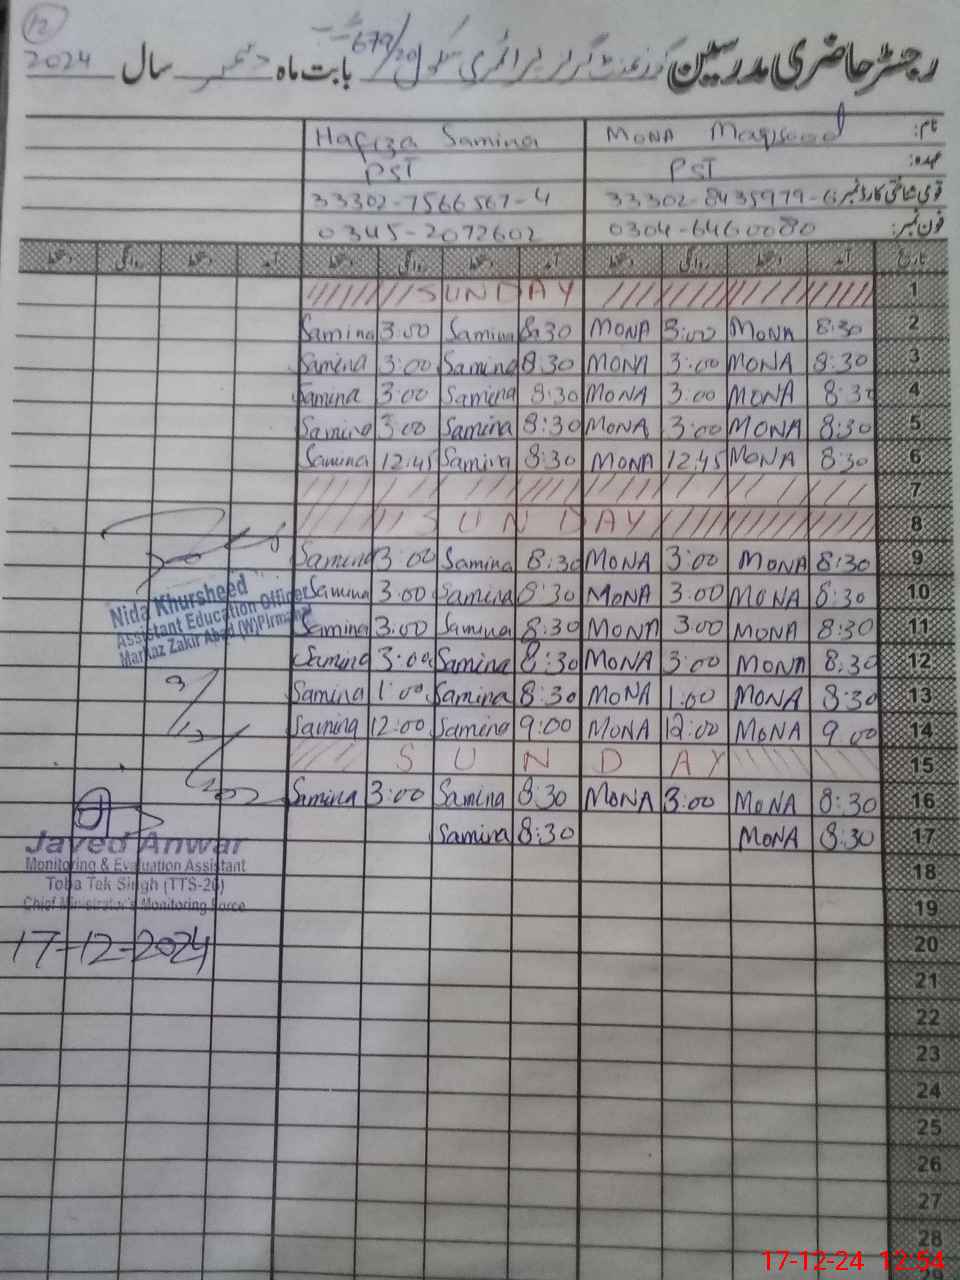 12
رجسٹر حاضری مدرسین گورنمنٹ گرلز پرائمری سکول 679/20 بابت ماہ دسمبر سال 2024
نام: Mona Maqsood Hafiza Samina
عہدہ: PST PST
قومی شناختی کارڈ نمبر: 33302-8435979-6 33302-7566567-4
فون نمبر: 0304-6460080 0345-2072602
تاریخ آمد دستخط روانگی دستخط آمد دستخط روانگی دستخط آمد دستخط روانگی دستخط
1 SUNDAY
2 8:30 MONA 3:00 MONA 8:30 Samina 3:00 Samina
3 8:30 MONA 3:00 MONA 8:30 Samina 3:00 Samina
4 8:30 MONA 3:00 MONA 8:30 Samina 3:00 Samina
5 8:30 MONA 3:00 MONA 8:30 Samina 3:00 Samina
6 8:30 MONA 12:45 MONA 8:30 Samina 12:45 Samina
7
8 SUNDAY
9 8:30 MONA 3:00 MONA 8:30 Samina 3:00 Samina
10 8:30 MONA 3:00 MONA 8:30 Samina 3:00 Samina
11 8:30 MONA 3:00 MONA 8:30 Samina 3:00 Samina
12 8:30 MONA 3:00 MONA 8:30 Samina 3:00 Samina
13 8:30 MONA 1:00 MONA 8:30 Samina 1:00 Samina
14 9:00 MONA 12:00 MONA 9:00 Samina 12:00 Samina
15 SUNDAY
16 8:30 MONA 3:00 MONA 8:30 Samina 3:00 Samina
17 8:30 MONA 8:30 Samina
18
19
20
21
22
23
24
25
26
27
28
29
Nida Khursheed
Assistant Education Officer
Markaz Zakir Abad (W) Pirmahal
Javed Anwar
Monitoring & Evaluation Assistant
Toba Tek Singh (TTS-26)
Chief Minister's Monitoring Force
17-12-2024
17-12-24 12:54